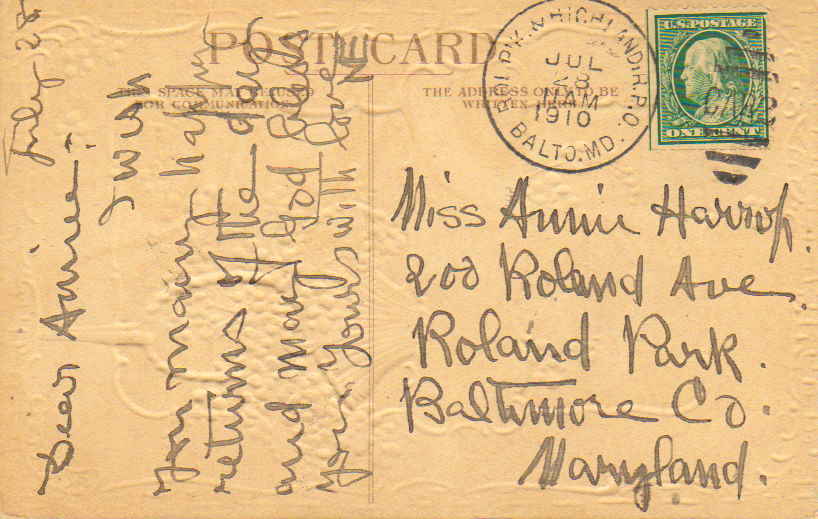 POST CARD
THIS SPACE MAY BE USED
FOR COMMUNICATION
THE ADDRESS ONLY TO BE
WRITTEN HERE
BALTO. MD.
JUL
28
1910
U.S. POSTAGE
ONE CENT
July 28
Dear Annie:
I wish
you many happy
returns of the day
and may God bless
you. Yours with love
Miss Annie Harrop.
200 Roland Ave.
Roland Park.
Baltimore Co.
Maryland.